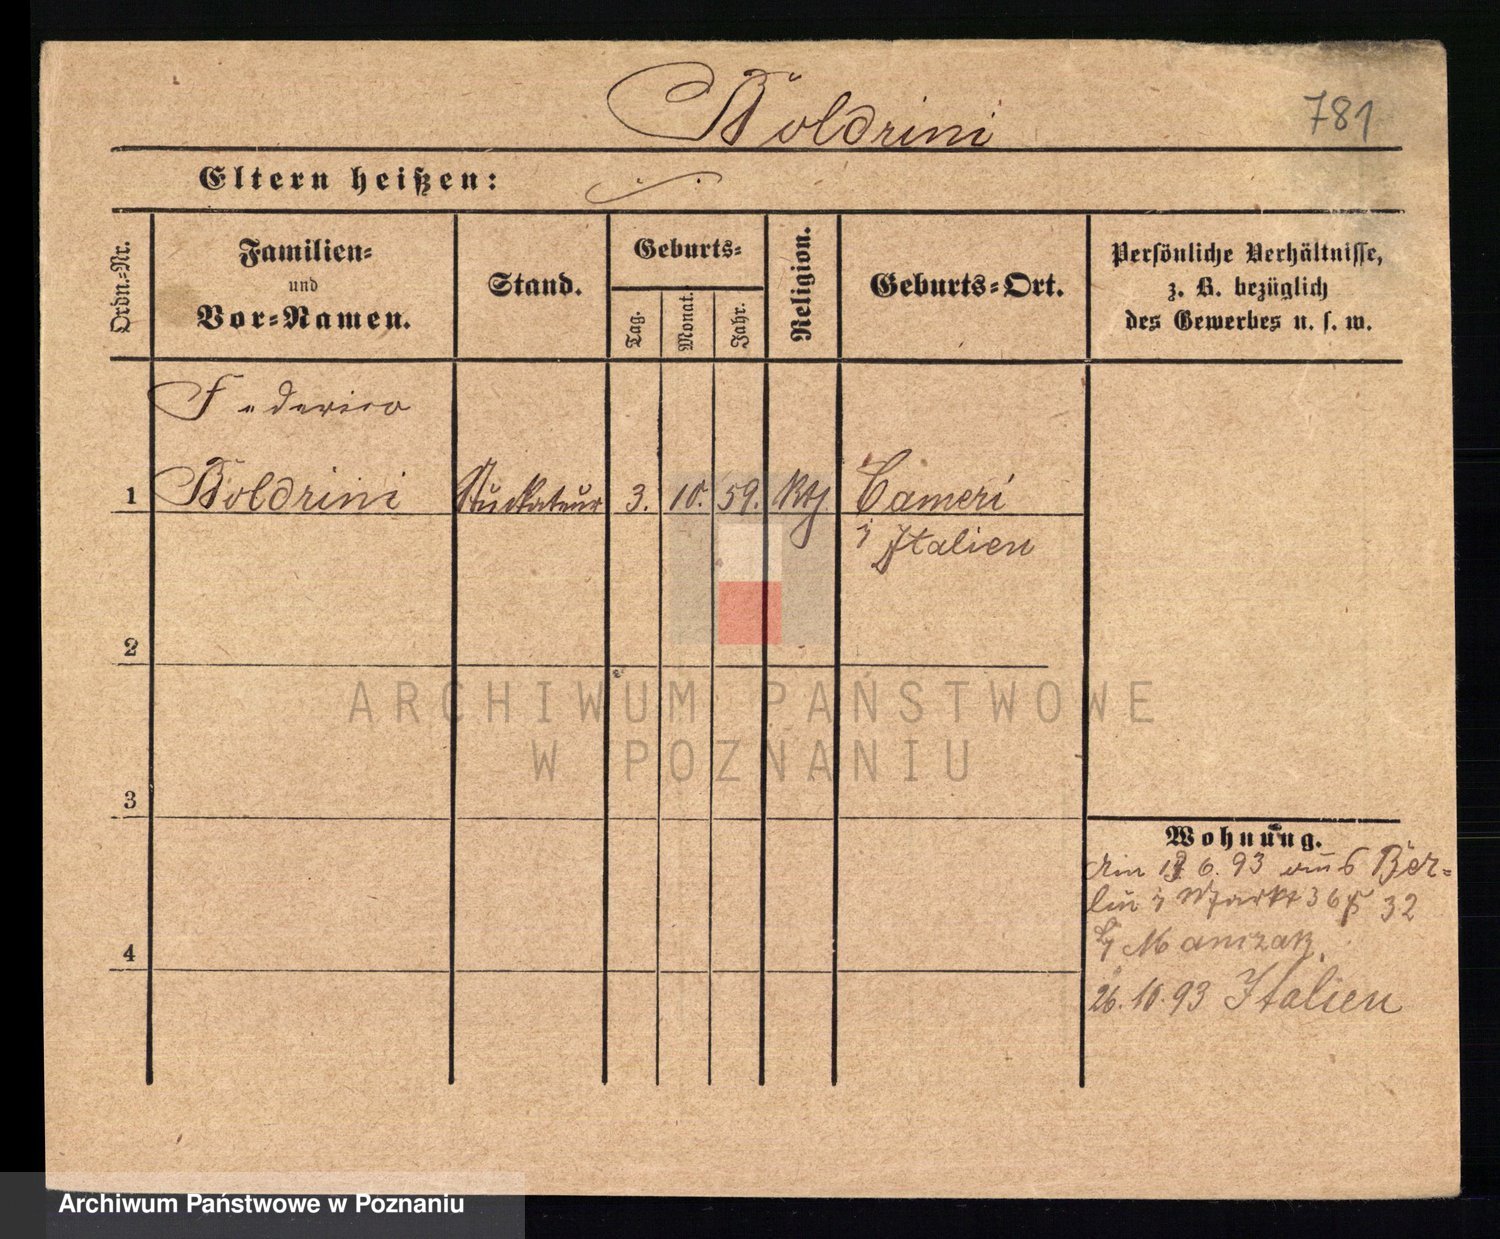 Boldrini
781
Eltern heißen:
Ordn.-Nr.
Familien-
und
Vor-Namen.
Stand.
Geburts-
Tag.
Monat.
Jahr.
Religion.
Geburts-Ort.
Persönliche Verhältnisse,
z. B. bezüglich
des Gewerbes u. s. w.
Federico
1 Boldrini Stuckateur 3. 10. 59. Kth. Cameri
i Italien
2
3
4
Wohnung.
6. 93 aus Ber-
lin Markt 32
26. 10. 93 Italien
ARCHIWUM PAŃSTWOWE
W POZNANIU
Archiwum Państwowe w Poznaniu